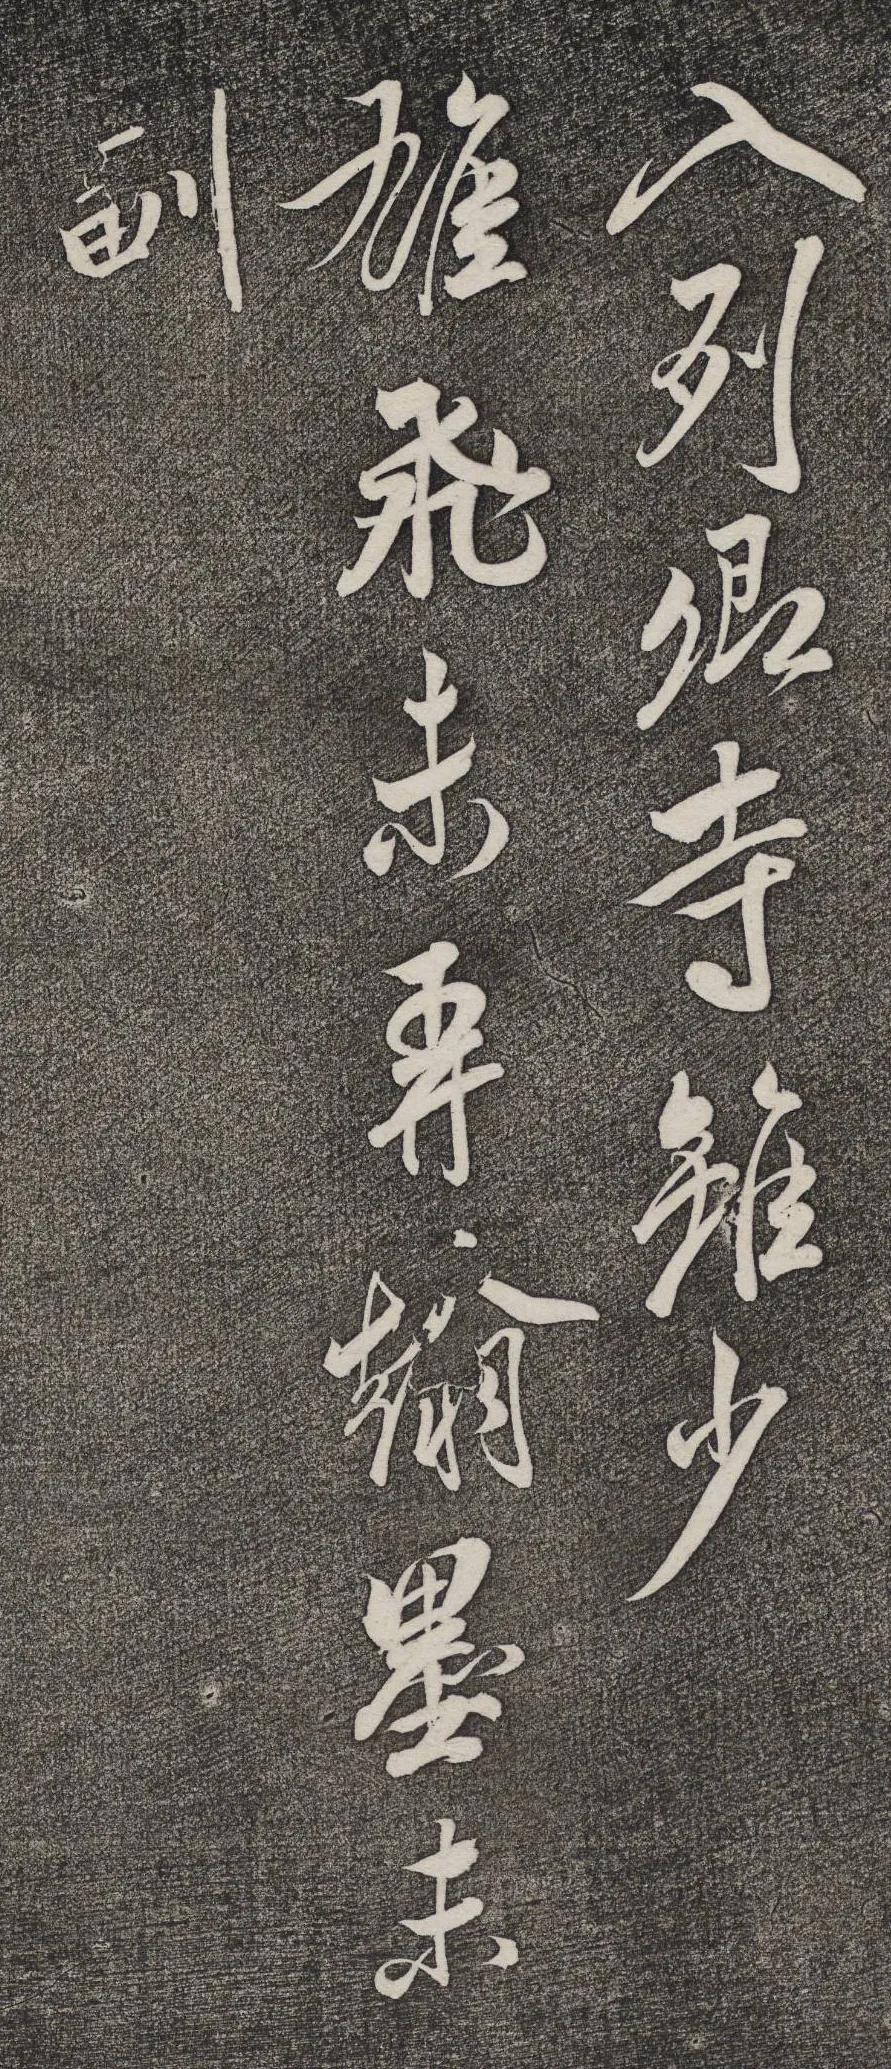 入列卿寺雖少
雄飛未再翰墨未
副